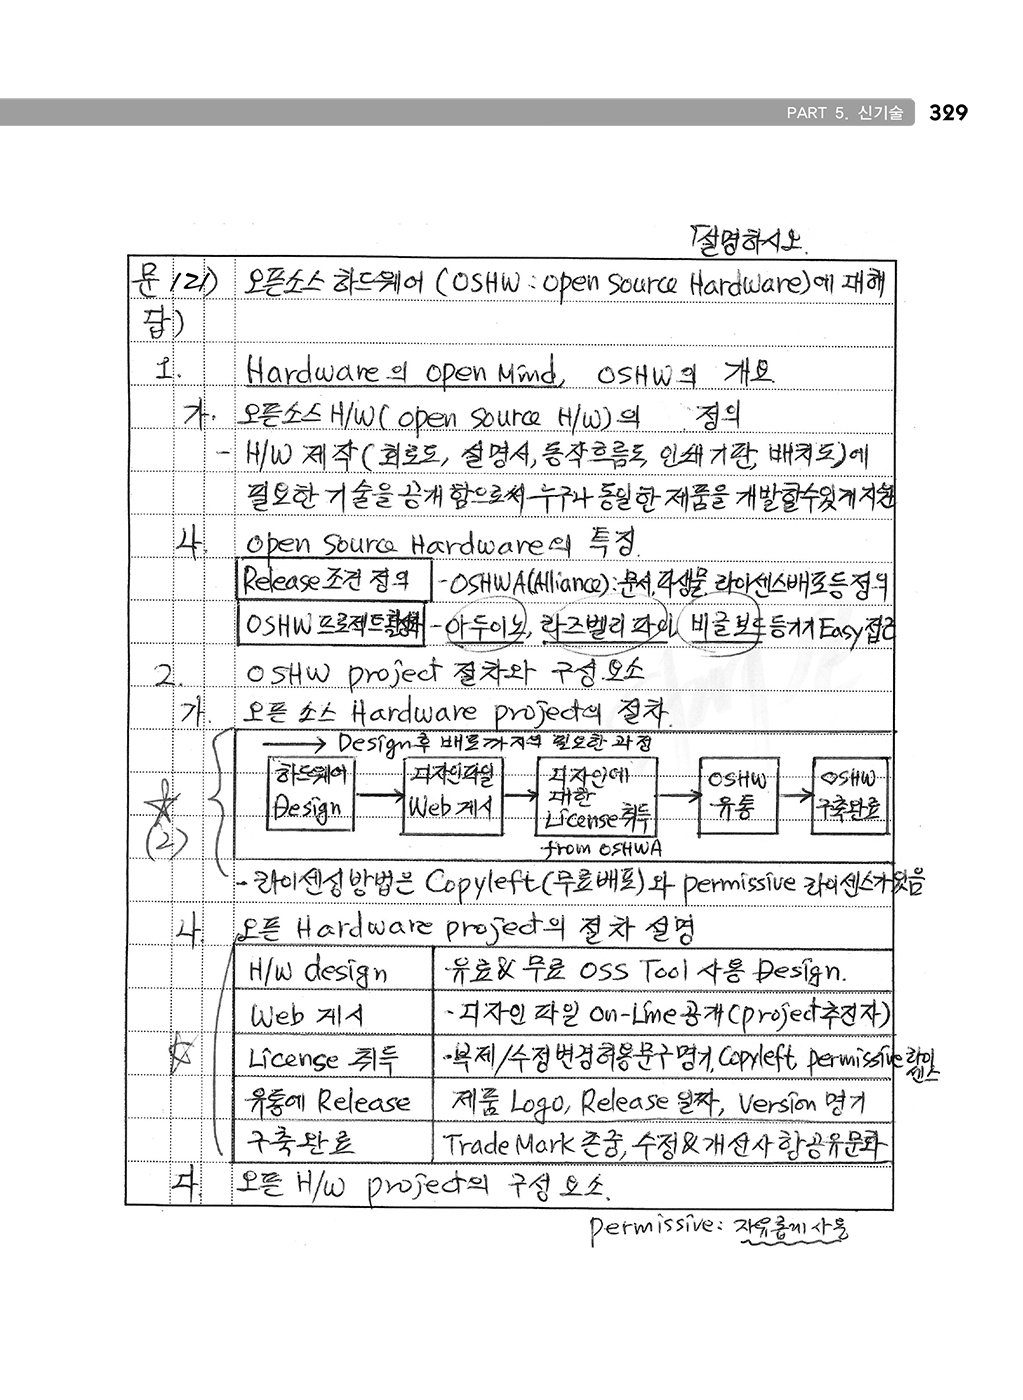 PART 5. 신기술 329
「설명하시오.
문 121) 오픈소스 하드웨어 (OSHW : Open Source Hardware)에 대해
답)
1. Hardware의 Open Mind, OSHW의 개요
가. 오픈소스 H/W( Open Source H/W)의 정의
- H/W 제작(회로도, 설명서, 동작흐름도, 인쇄기판, 배치도)에
필요한 기술을 공개함으로써 누구나 동일한 제품을 개발할수있게지원
나. Open Source Hardware의 특징
Release 조건 정의 - OSHWA(Alliance) : 문서, 파생물, 라이센스배포등 정의
OSHW 프로젝트활성화 - 아두이노, 라즈벨리 파이, 비글보드등 Easy 접근
2. OSHW project 절차와 구성요소
가. 오픈 소스 Hardware project의 절차.
→ Design후 배포까지의 필요한 과정
하드웨어 Design → 디자인파일 Web 게시 → 디자인에 대한 License 취득 → OSHW 유통 → OSHW 구축완료
from OSHWA
(2)
- 라이센싱 방법은 Copyleft (무료배포)와 permissive 라이센스가 있음
나. 오픈 Hardware project의 절차 설명
H/W design 유료 & 무료 OSS Tool 사용 Design.
Web 게시 - 디자인 파일 On-Line 공개 (project 추진자)
License 취득 - 복제/수정변경허용문구명기, Copyleft, permissive 라이센스
유통에 Release 제품 Logo, Release 일짜, Version 명기
구축 완료 Trade Mark 존중, 수정&개선사항공유문화
다. 오픈 H/W project의 구성 요소.
permissive : 자유롭게 사용